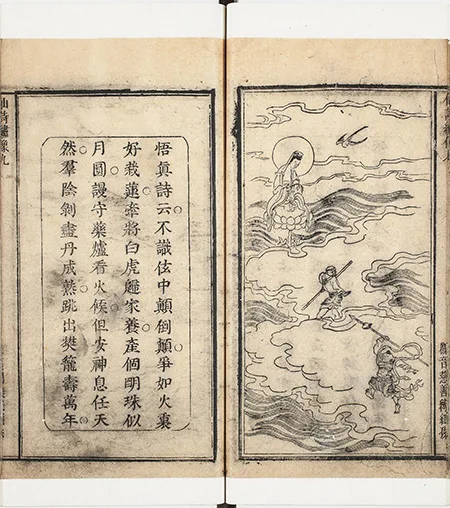 觀音慈善縛紅孩
悟眞詩云不識伭中顛倒顛爭如火裏
好栽蓮牽將白虎歸家養產個明珠似
月圓謾守藥爐看火候但安神息任天
然羣陰剝盡丹成熟跳出樊籠壽萬年
仙詩繡像九